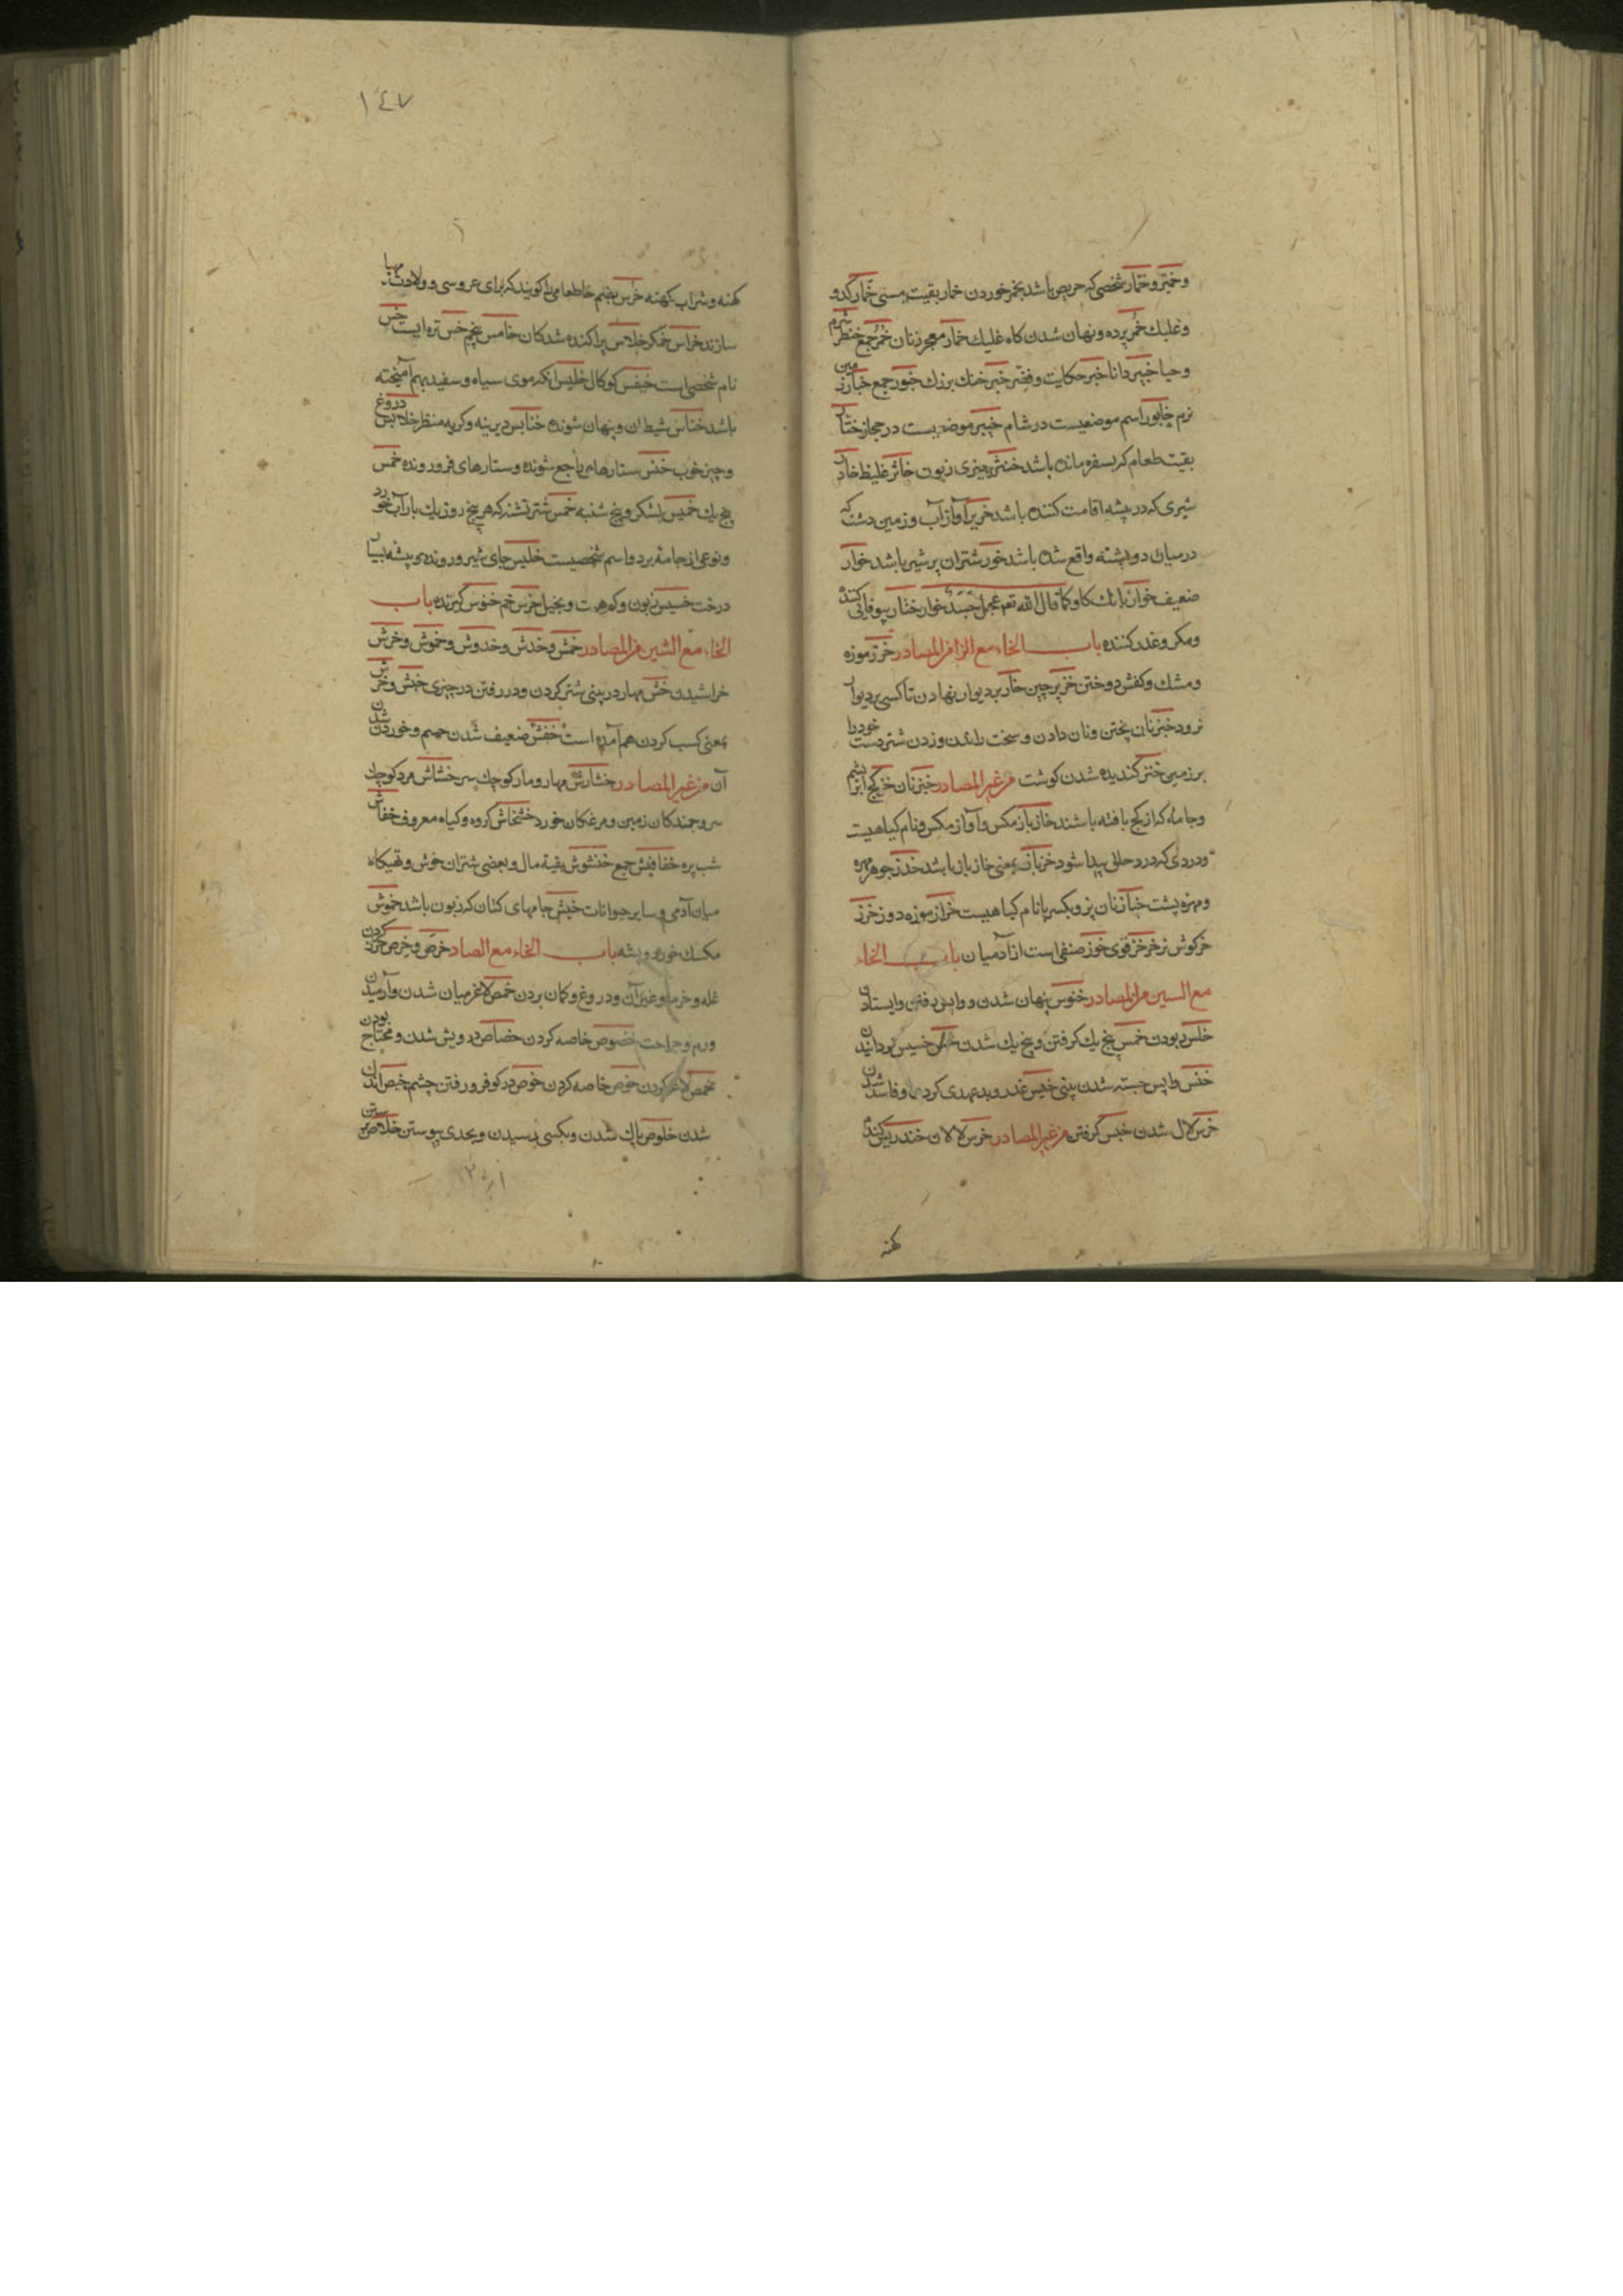 وخمیر وخمار شخصی که حریص باشد بخمر خوردن خمار بقیت مستی خمار کدو
وغلبك خمر پرده ونهان شدن کاه غلبك خمار معجر زنان خمر جمع خنطر شرم
وحیا خبیر دانا خبر حکایت وقصّه خبر خنك بزرك خبور جمع خبار زمین
نرم خابور اسم موضعیست در شام خیبر موضعیست در حجاز ختار
بقیت طعام که بسفره مانده باشد خنثر چیزی زبون خاثر غلیظ خادر
شیری که در بیشه اقامت کننده باشد خریر آواز آب وزمین دشت که
در میان دو پشته واقع شده باشد خور شتران پر شیر باشد خوار
ضعیف خوار بانك کاو کما قال الله تعم عجلا جسدا له خوار ختار بیوفایی کننده
ومکر وغدر کننده باب الخاء مع الزا من المصادر خرز موزه
ومشك وکفش دوختن خز پرچین خار بر دیوار نهادن تا کسی بر دیوار
نرود خبز نان پختن ونان دادن وسخت راندن وزدن شتر دست خود را
بر زمین خنز کندیده شدن کوشت من غیر المصادر خبز نان خز کج ابریشم
وجامه که از کج بافته باشند خازباز مکس وآواز مکس ونام کیاهیست
ودردی که در حلق پیدا شود خزباز بمعنی خازباز باشد خرز جوهر مهره
ومهره پشت خباز نان پز وبکسر با نام کیاهیست خراز موزه دوز خزز
خرکوش نر خزخز قوی خوز صنفی است از آدمیان باب الخاء
مع السین من المصادر خنوس پنهان شدن وواپس رفتن وایستادن
خلس ربودن خمس پنج یك کرفتن وپنج یك شدن خس خسیس بودانیدن
خنس واپس جسته شدن بینی خیس غدر وبدعهدی کردن وفاسد شدن
خرس لال شدن خبس کرفتن من غیر المصادر خرس لالان خندریس کندم
کهنه
١٤٧
کهنه وشراب کهنه خرس بضم خا طعامی را کویند که برای عروسی وولادت مهیا
سازند خراس خمکر خلاس پراکنده شدکان خامس پنجم خس تره ایست خس
نام شخصی است خنفس کوکال خلیس آنکه موی سیاه وسفید بهم آمیخته
باشد خناس شیطان وپنهان شونده خنابس دیرینه وکریه منظر خلابس دروغ
وچیز خوب خنس ستارهای راجع شونده وستارهای فرو رونده خمس
پنج یك خمیس لشکر وپنج شنبه خمس شتر تشنه که هر پنج روز یك بار آب خورد
ونوعی از جامه برد واسم شخصیست خیس جای شیر ورونده وبیشه بسیار
درخت خسیس زبون وکم همت وبخیل خرس خم خنوس کیرنده باب
الخاء مع الشین من المصادر خمش وخدش وخدوش وخموش وخرش
خراشیدن خش مهار در بینی شتر کردن ودر رفتن در چیزی خبش وخرش
بمعنی کسب کردن هم آمده است خفش ضعیف شدن چشم وخورد شدن
آن من غیر المصادر خشاش مهار ومار کوچك سر خشاش مرد کوچك
سر وجمندکان زمین ومرغکان خورد خشخاش کروه وکیاه معروف خفاش
شب پره خفافیش جمع خنشوش بقیة مال وبعضی شتران خوش وتهیکاه
میان آدمی وسایر حیوانات خیش جامهای کتان که زبون باشد خموش
مکسك خورد وپشه باب الخاء مع الصاد خرص وخرص حزر کردن
غله وخرما وغیر آن ودروغ وکمان بردن خمص لاغر میان شدن وآرمیدن
ورم وجراحت خصوص خاصه کردن خصاص درویش شدن ومحتاج بودن
خمص لاغر کردن خوص خاصه کردن خوص در کو فرو رفتن چشم خبص اندن
شدن خلوص پاك شدن وبکسی رسیدن وبحدی پیوستن خلاص رستن